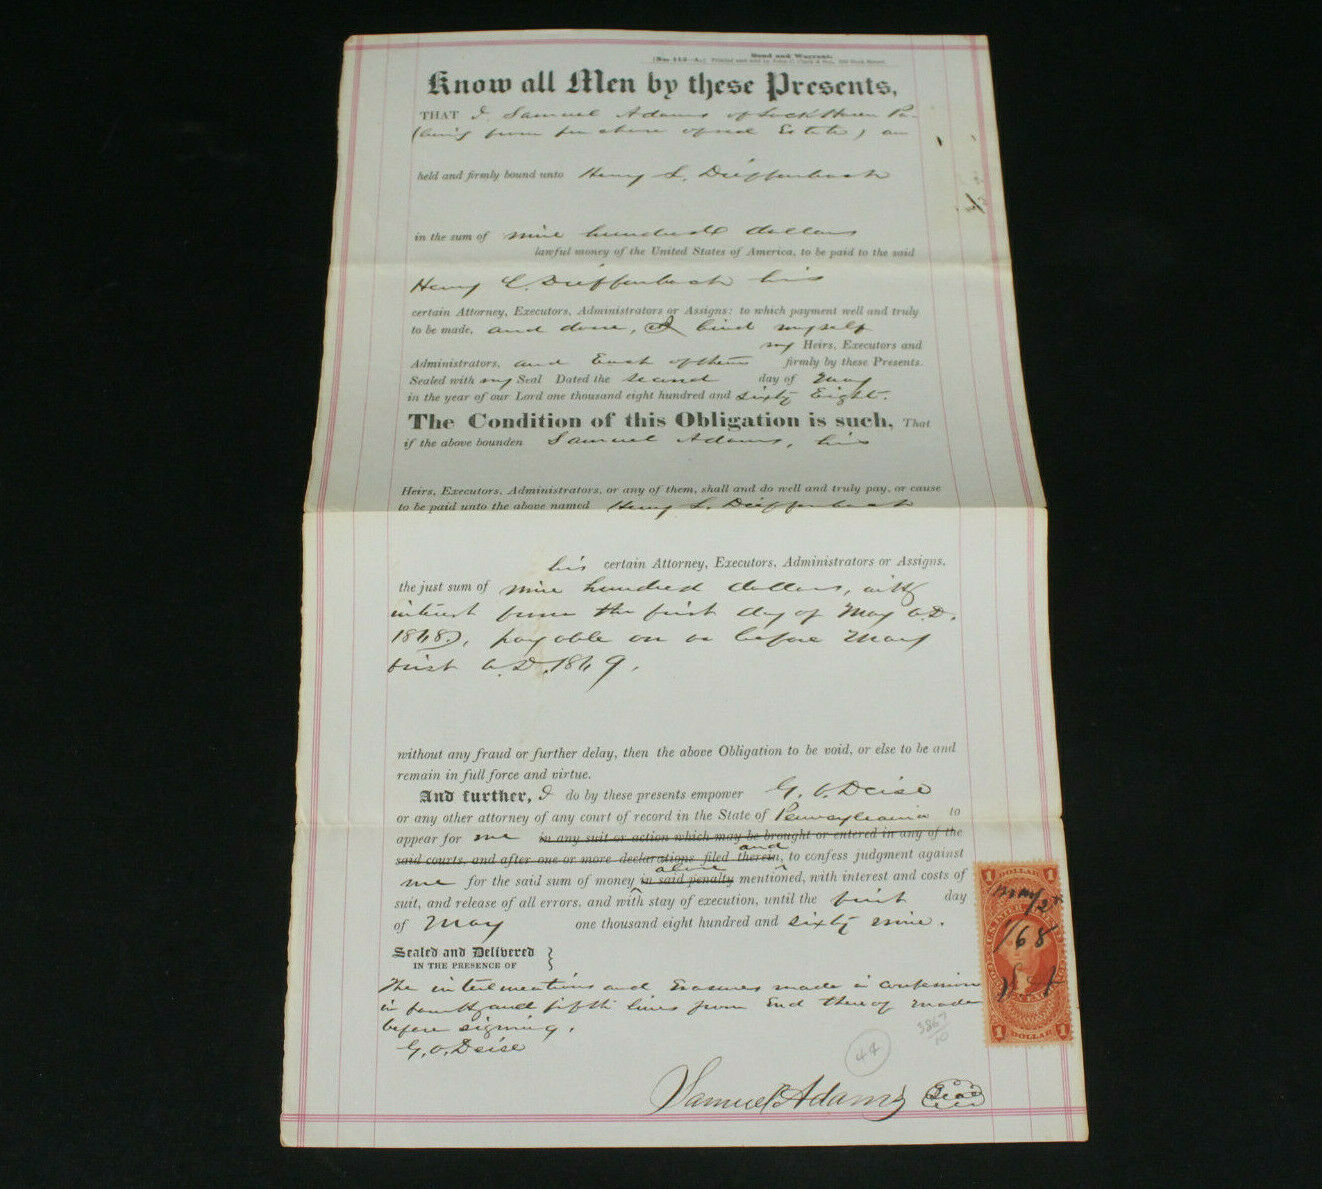 Bond and Warrant.
[No. 113–A.] Printed and sold by John C. Clark & Son, 230 Dock Street.
Know all Men by these Presents,
THAT I Samuel Adams of Lock Haven Pa.
(being from purchase of real Estate) am
held and firmly bound unto Henry L. Dieffenbach
in the sum of nine hundred dollars
lawful money of the United States of America, to be paid to the said
Henry L. Dieffenbach his
certain Attorney, Executors, Administrators or Assigns: to which payment well and truly
to be made, and done, I bind myself
my Heirs, Executors and
Administrators, and Each of them firmly by these Presents.
Sealed with my Seal Dated the second day of May
in the year of our Lord one thousand eight hundred and sixty Eight.
The Condition of this Obligation is such, That
if the above bounden Samuel Adams, his
Heirs, Executors, Administrators, or any of them, shall and do well and truly pay, or cause
to be paid unto the above named Henry L. Dieffenbach
his certain Attorney, Executors, Administrators or Assigns,
the just sum of nine hundred dollars, with
interest from the first day of May A.D.
1868, payable on or before May
first A.D. 1869.
without any fraud or further delay, then the above Obligation to be void, or else to be and
remain in full force and virtue.
And further, I do by these presents empower G. O. Deise
or any other attorney of any court of record in the State of Pennsylvania to
appear for me in any suit or action which may be brought or entered in any of the
said courts, and after one or more declarations filed therein, and to confess judgment against
me for the said sum of money in said penalty above mentioned, with interest and costs of
suit, and release of all errors, and with stay of execution, until the first day
of May one thousand eight hundred and sixty nine.
Sealed and Delivered
IN THE PRESENCE OF
The interlineations and Erasures made in confession
in fourth and fifth lines from End thereof made
before signing.
G. O. Deise
44
3867
10
Samuel Adams Seal
1 DOLLAR 1
May 2d
/68
S A
1 DOLLAR 1